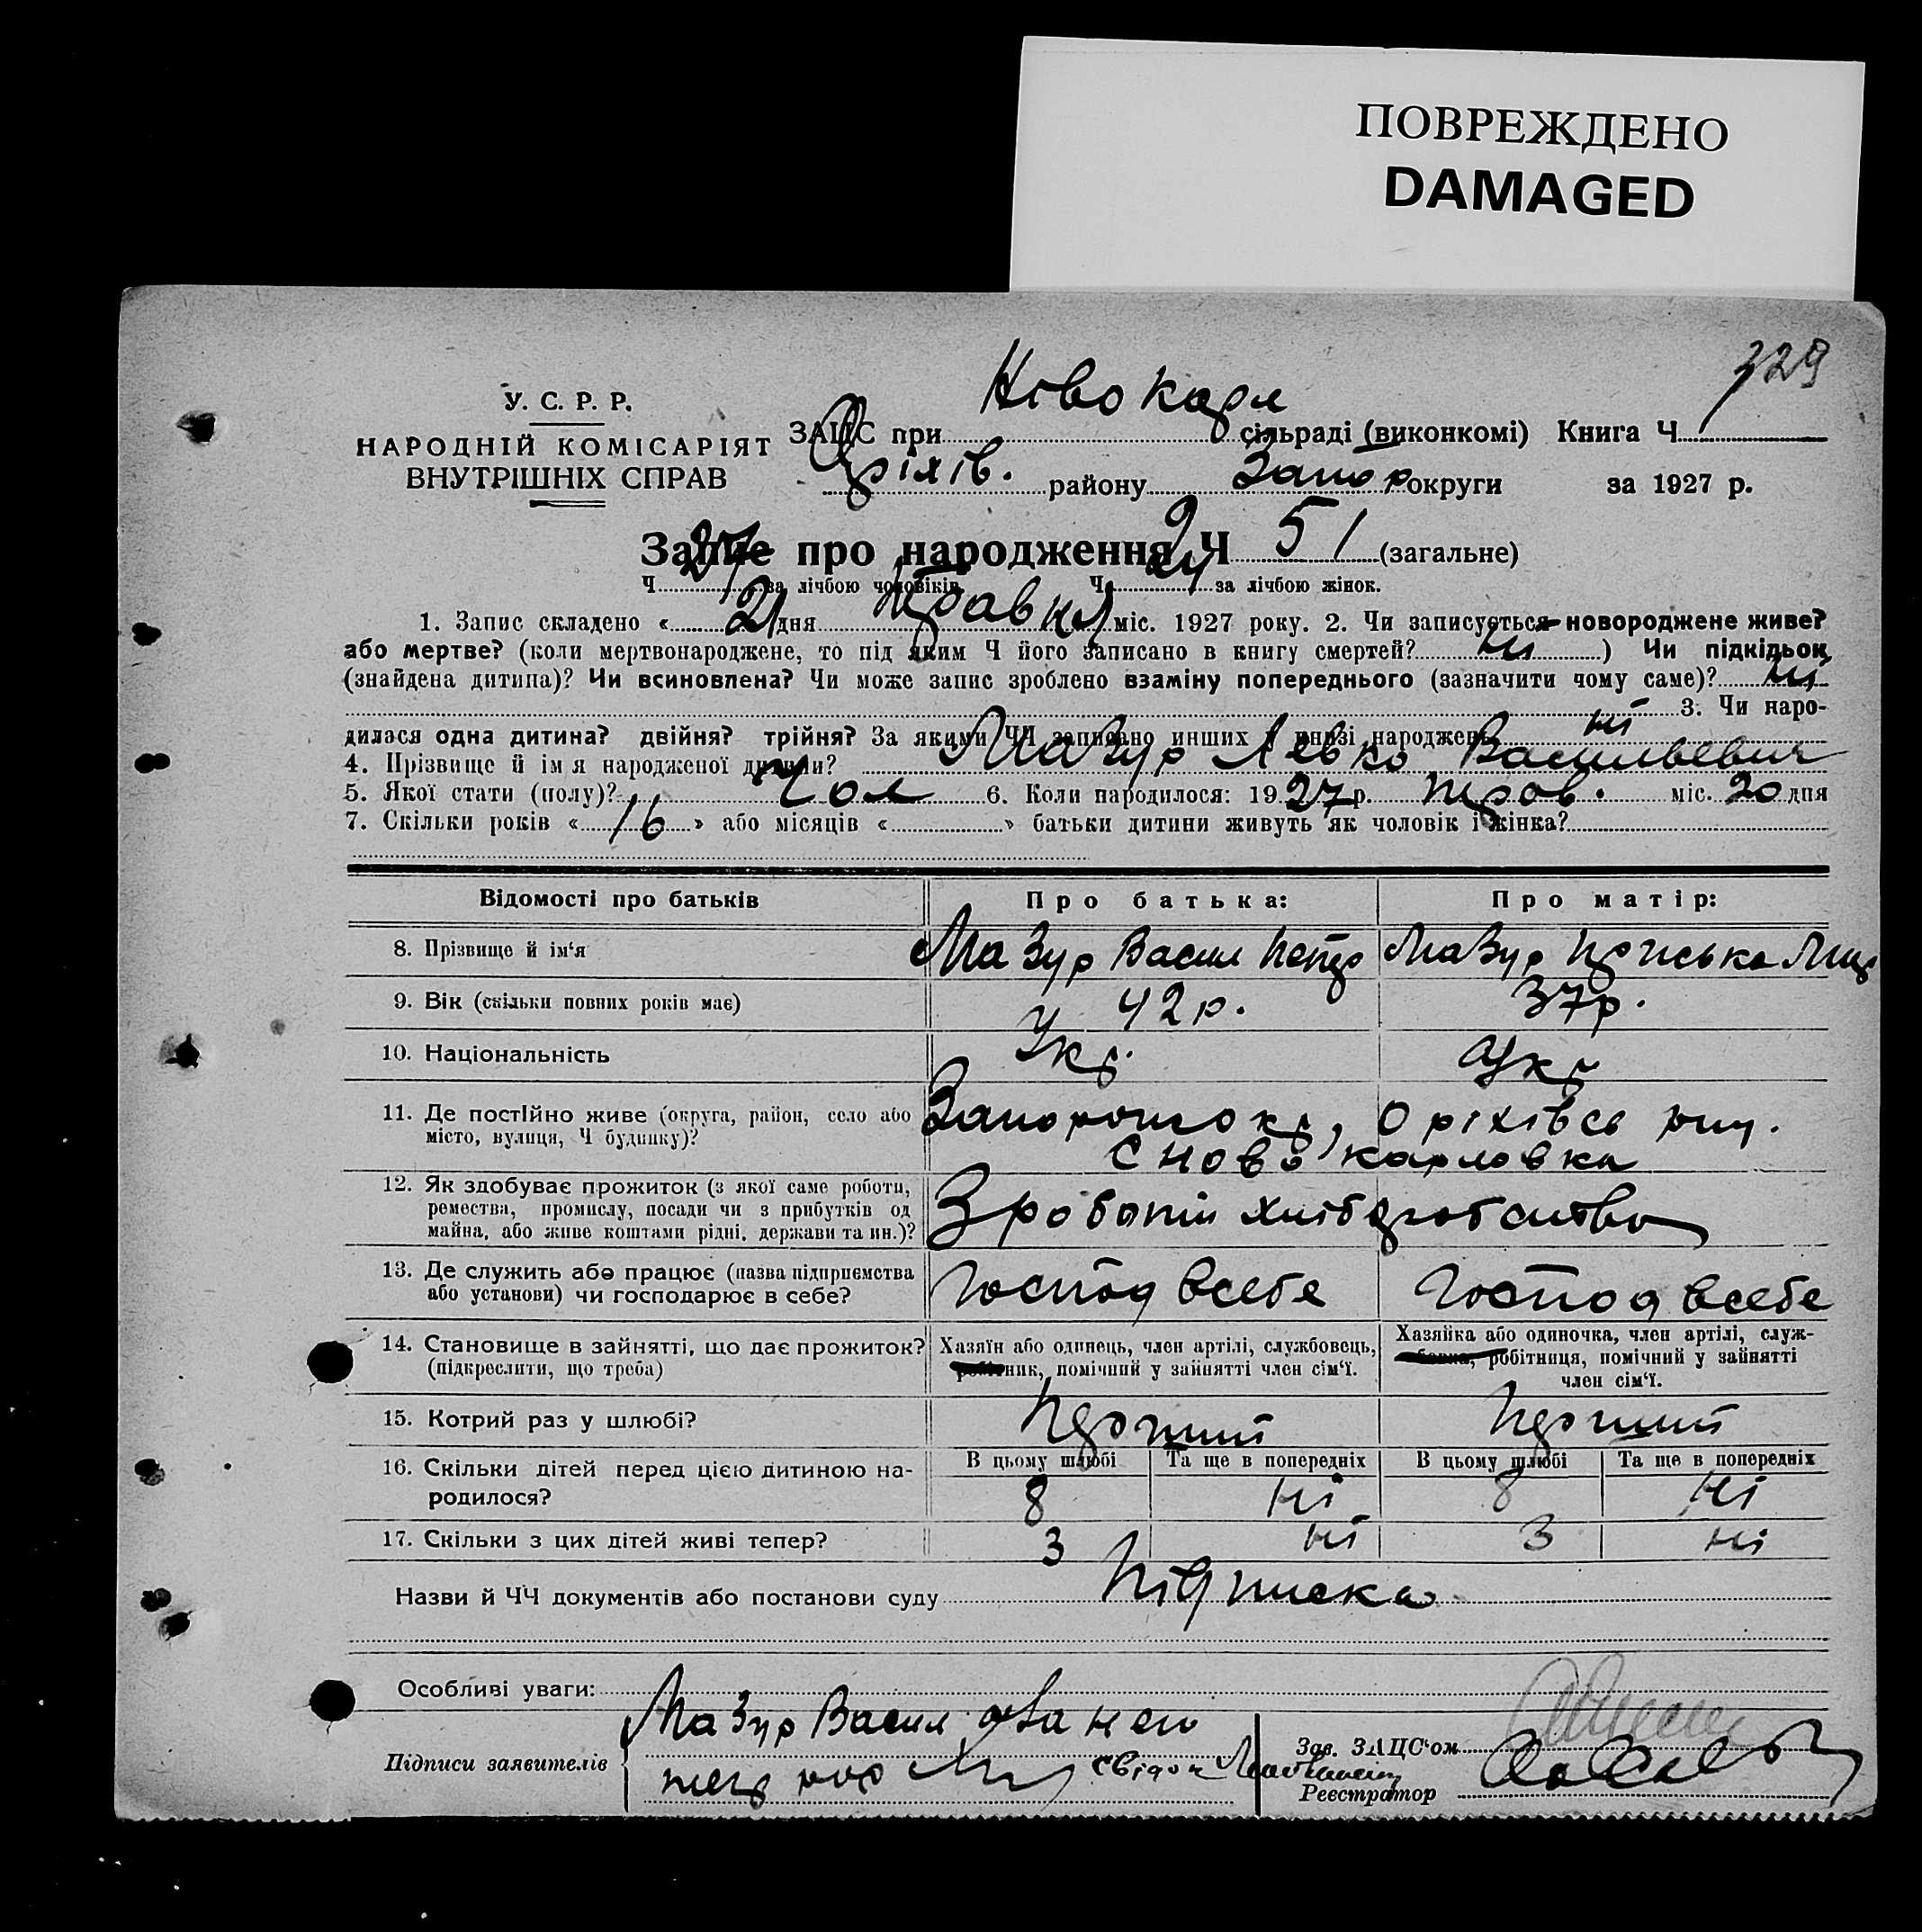 ПОВРЕЖДЕНО
DAMAGED
329
У. С. Р. Р.
НАРОДНІЙ КОМІСАРІЯТ
ВНУТРІШНІХ СПРАВ
ЗАЦС при Ново Карл сільраді (виконкомі) Книга Ч
Оріхів. району Запор округи за 1927 р.
Запис про народження Ч 51 (загальне)
Ч 27 за лічбою чоловіків Ч 24 за лічбою жінок.
1. Запис складено « 21 дня травня міс. 1927 року. 2. Чи записується новороджене живе?
або мертве? (коли мертвонароджене, то під яким Ч його записано в книгу смертей? ні ) Чи підкідьок
(знайдена дитина)? Чи всиновлена? Чи може запис зроблено взаміну попереднього (зазначити чому саме)? ні
3. Чи наро-
дилася одна дитина? двійня? трійня? За якими ЧЧ записано инших у книзі народжень ні
4. Прізвище й ім'я народженої дитини? Мазур Левко Васильевич
5. Якої стати (полу)? Чол 6. Коли народилося: 1927 р. трав. міс. 20 дня
7. Скільки років « 16 » або місяців « » батьки дитини живуть як чоловік і жінка?
Відомості про батьків Про батька: Про матір:
8. Прізвище й ім'я Мазур Васил Петр Мазур Приська
9. Вік (скільки повних років має) 42 р. 37 р.
10. Національність Укр. Укр
11. Де постійно живе (округа, район, село або Запорош окр, Оріхівсь
місто, вулиця, Ч будинку)? с Ново Карловка
12. Як здобуває прожиток (з якої саме роботи,
ремества, промислу, посади чи з прибутків од
майна, або живе коштами рідні, держави та ин.)? З роботи хліборобства
13. Де служить або працює (назва підприємства
або установи) чи господарює в себе? Господ всебе Господ всебе
14. Становище в зайнятті, що дає прожиток? Хазяїн або одинець, член артілі, службовець, Хазяйка або одиночка, член артілі, служ-
(підкреслити, що треба) робітник, помічний у зайнятті член сім'ї. бовка, робітниця, помічний у зайнятті
член сім'ї.
15. Котрий раз у шлюбі? Перший Перший
В цьому шлюбі Та ще в попередніх В цьому шлюбі Та ще в попередніх
16. Скільки дітей перед цією дитиною на-
родилося? 8 ні 8 ні
17. Скільки з цих дітей живі тепер? 3 ні 3 ні
Назви й ЧЧ документів або постанови суду Підписка
Особливі уваги:
Мазур Васил а за него
Підписи заявителів свідок
Зав. ЗАЦС'ом
Реєстратор